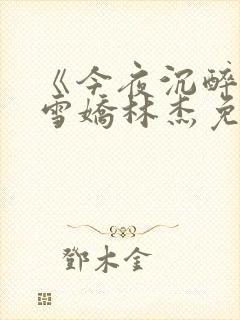 《今夜沉醉
雪嬌林杰免
鄧木金